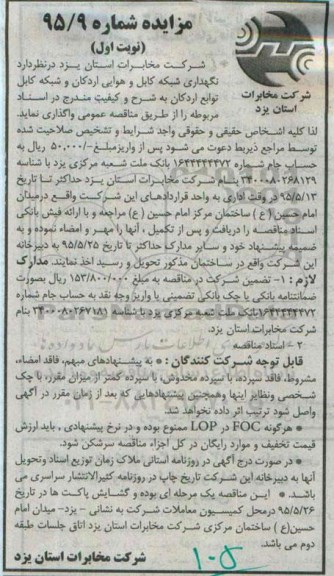 مزایده شماره ۹۵/۹
(نوبت اول)
شرکت مخابرات
استان یزد
شرکت مخابرات استان یزد درنظردارد
نگهداری شبکه کابل و هوایی اردکان و شبکه کابل
توابع اردکان به شرح و کیفیت مندرج در اسناد
مربوطه را از طریق مناقصه عمومی واگذاری نماید.
لذا کلیه اشخاص حقیقی و حقوقی واجد شرایط و تشخیص صلاحیت شده
توسط مراجع ذیربط دعوت می شود پس از واریزمبلغ-/۵۰,۰۰۰ ریال به
حساب جام شماره ۱۶۴۴۴۴۴۴۷۲ بانک ملت شعبه مرکزی یزد با شناسه
۳۴۰۰۰۸۰۲۶۸۱۲۹ بنام شرکت مخابرات استان یزد حداکثر تا تاریخ
۹۵/۵/۱۳ در وقت اداری به واحد قراردادهای این شرکت واقع درمیدان
امام حسین(ع) ساختمان مرکز امام حسین (ع) مراجعه و با ارائه فیش بانکی
اسناد مناقصه را دریافت و پس از تکمیل ، آنها را مهر و امضاء نموده و به
ضمیمه پیشنهاد خود و سایر مدارک حداکثر تا تاریخ ۹۵/۵/۲۵ به دبیرخانه
این شرکت واقع در ساختمان مذکور تحویل و رسید اخذ نمایند. مدارک
لازم : ۱- تضمین شرکت در مناقصه به مبلغ ۱۵۳/۸۰۰/۰۰۰ ریال بصورت
ضمانتنامه بانکی یا چک بانکی تضمینی یا واریز وجه نقد به حساب جام شماره
۱۶۴۴۴۴۴۴۷۲بانک ملت شعبه مرکزی یزد با شناسه ۳۴۰۰۰۸۰۲۶۷۱۸۱ بنام
شرکت مخابرات استان یزد.
۲- اسناد مناقصه
قابل توجه شرکت کنندگان : به پیشنهادهای مبهم، فاقد امضاء،
مشروط، فاقد سپرده، با سپرده مخدوش، با سپرده کمتر از میزان مقرر، با چک
شخصی ونظایر اینها وهمچنین پیشنهادهایی که بعد از زمان مقرر در آگهی
واصل شود ترتیب اثر داده نخواهد شد.
هرگونه FOC در LOP ممنوع بوده و در نرخ پیشنهادی ، باید ارزش
قیمت تخفیف و موارد رایگان در کل اجزاء مناقصه سرشکن شود.
در صورت درج آگهی در روزنامه استانی ملاک زمان توزیع اسناد وتحویل
آنها به دبیرخانه این شرکت تاریخ چاپ در روزنامه کثیرالانتشار سراسری می
باشد. این مناقصه یک مرحله ای بوده و گشایش پاکت ها در تاریخ
۹۵/۵/۲۶ درمحل کمیسیون معاملات شرکت به نشانی - یزد- میدان امام
حسین(ع) ساختمان مرکزی شرکت مخابرات استان یزد اتاق جلسات طبقه
دوم می باشد.
شرکت مخابرات استان یزد